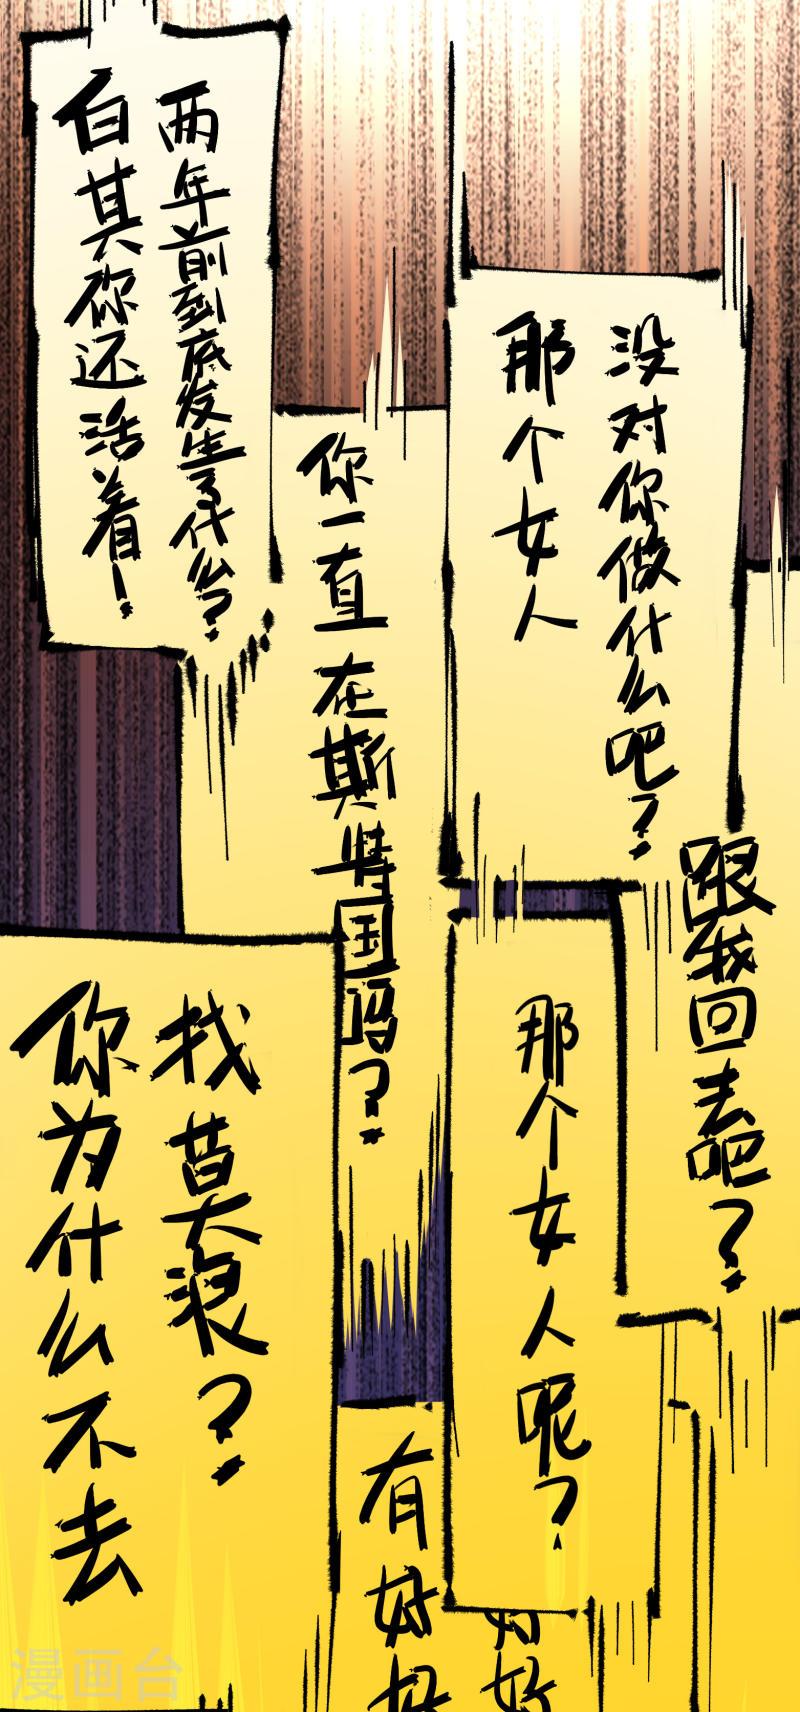 白其你还活着！
两年前到底发生了什么？
那个女人
没对你做什么吧？
你一直在斯特国吗？
跟我回去吧？
你为什么不去
找莫浪？
那个女人呢？
有好好
好好
漫画台